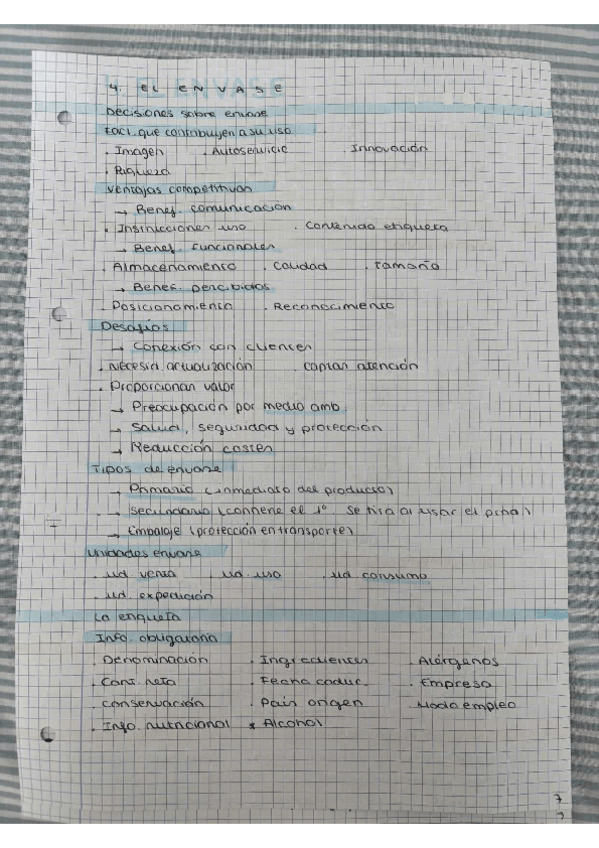 4. EL ENVASE
Decisiones sobre envase
Fact. que contribuyen a su uso
. Imagen . Autoservicio . Innovación
. Riqueza
Ventajas competitivas
→ Benef. comunicación
. Instrucciones uso . Contenido etiqueta
→ Benef. funcionales
. Almacenamiento . Calidad . Tamaño
→ Benef. percibidos
. Posicionamiento . Reconocimiento
Desafíos
→ Conexión con clientes
. Necesid. actualización captar atención
. Proporcionan valor
→ Preocupación por medio amb.
→ Salud, seguridad y protección
→ Reducción costes
Tipos de envase
→ Primario (inmediato del producto)
→ Secundario (contiene el 1º se tira al usar el pcpal)
→ Embalaje (protección en transporte)
Unidades envase
. ud. venta . ud. uso . ud consumo
. ud. expedición
La etiqueta
Info. obligatoria
. Denominación . Ingredientes . Alérgenos
. Cant. neta . Fecha caduc. . Empresa
. Conservación . País origen . Modo empleo
. Info. nutricional * Alcohol
7